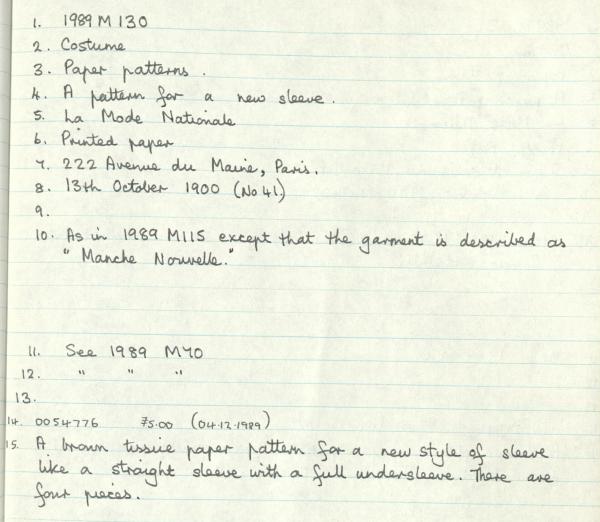 1. 1989 M 130
2. Costume
3. Paper patterns.
4. A pattern for a new sleeve.
5. La Mode Nationale
6. Printed paper
7. 222 Avenue du Maine, Paris.
8. 13th October 1900 (No 41)
9.
10. As in 1989 M115 except that the garment is described as
" Manche Nouvelle."
11. See 1989 M70
12. " " "
13.
14. 0054776 75.00 (04.12.1989)
15. A brown tissue paper pattern for a new style of sleeve
like a straight sleeve with a full undersleeve. There are
four pieces.